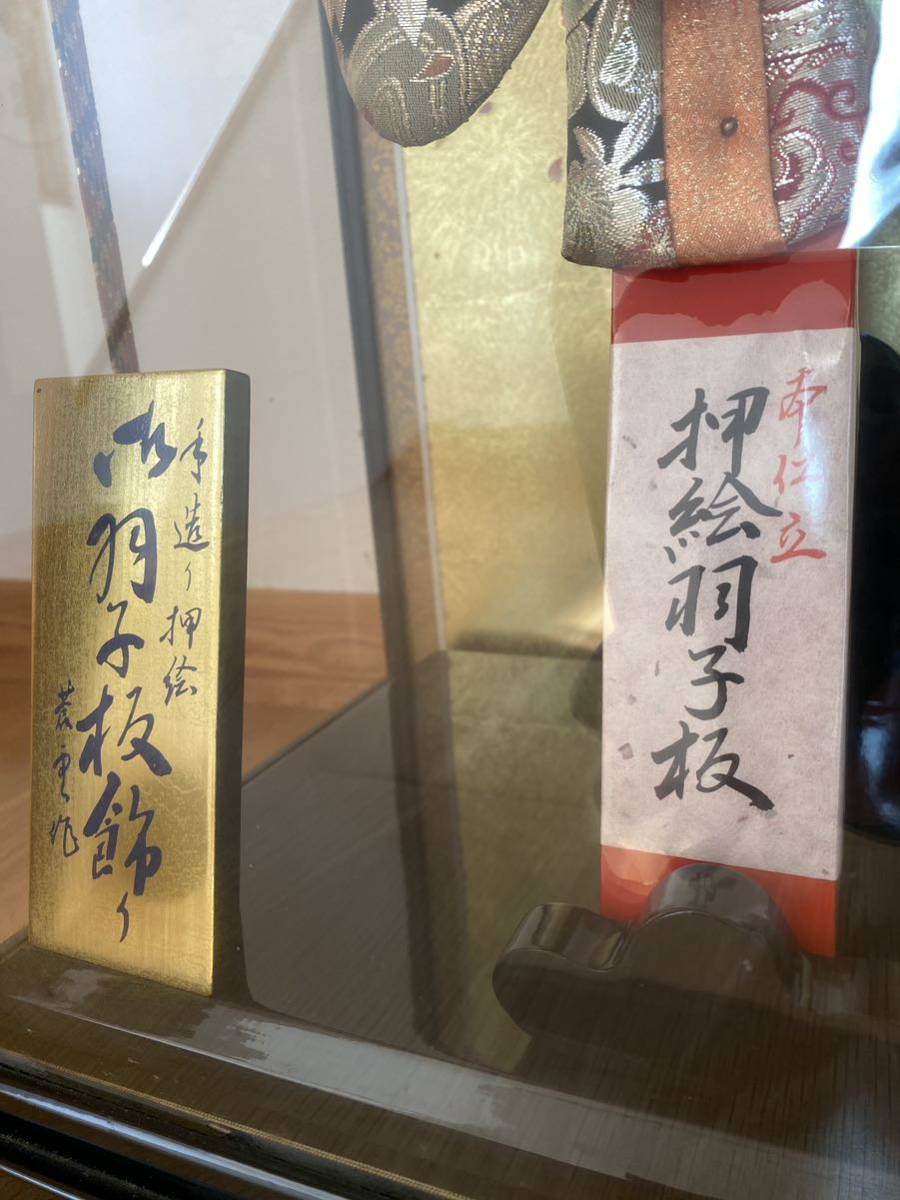 手造り押絵
御羽子板飾り
本仁立
押絵羽子板